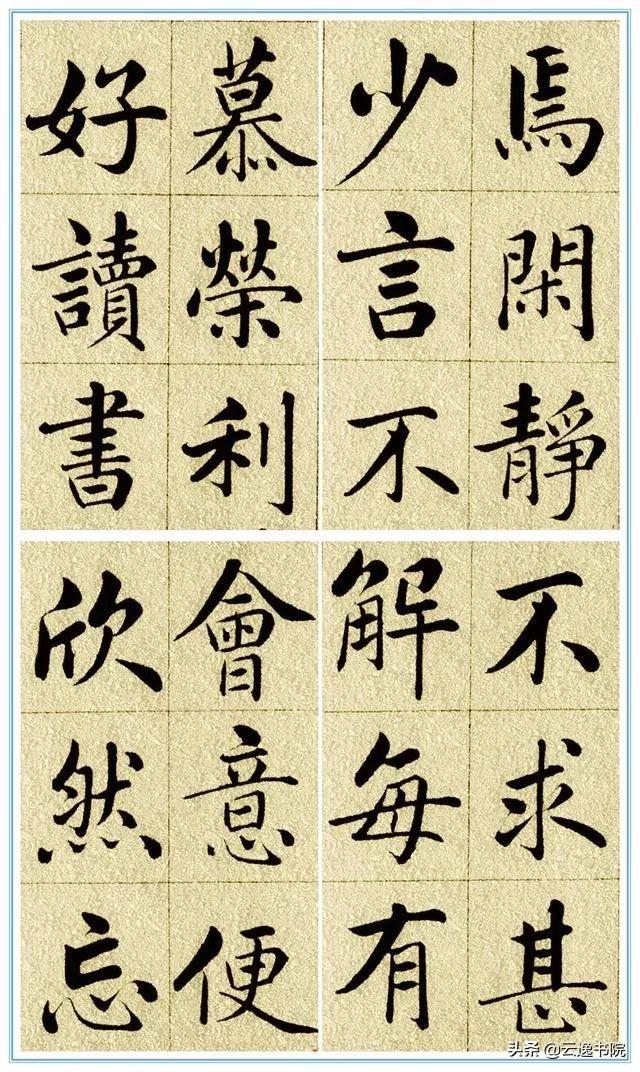 焉閑靜
少言不
慕榮利
好讀書
不求甚
解每有
會意便
欣然忘
头条 @云逸书院